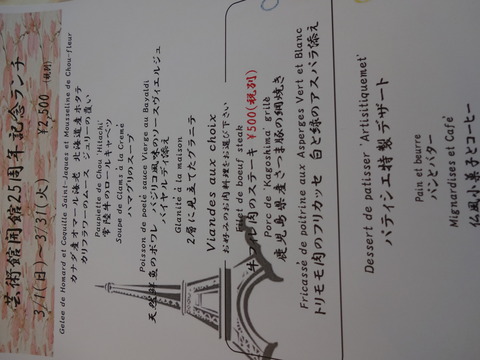 芸術館開館25周年記念ランチ
3/1(日)～3/31(火) ¥2,500(税別)
Gelee de Homard et Coquille Saint-Jaques et Mousseline de Chou-fleur
カナダ産オマール海老 北海道産ホタテ
カリフラワーのムース ジュリーの装い
Paupiette de Chou 'Hitachi'
常陸牛のロールキャベツ
Soupe de Clams à la Creme
ハマグリのスープ
Poisson de poelé sauce Vierge au Bayaldi
天然鮮魚のポワレ バジルコ風味のソースヴィエルジュ
バイヤルディ添え
Glanité à la maison
2層に見立てたグラニテ
Viandes aux choix
お好みのお肉料理をお選び下さい
Filet de boeuf steak
牛フィレ肉のステーキ +¥500(税別)
Porc de 'Kagoshima grillé
鹿児島県産さつま豚の網焼き
Fricassé de poitrine aux Asperges Vert et Blanc
トリモモ肉のフリカッセ 白と緑のアスパラ添え
Dessert de patissier 'Artisitiquemet'
パティシエ特製デザート
Pain et beurre
パンとバター
Mignardises et Café
仏風小菓子とコーヒー